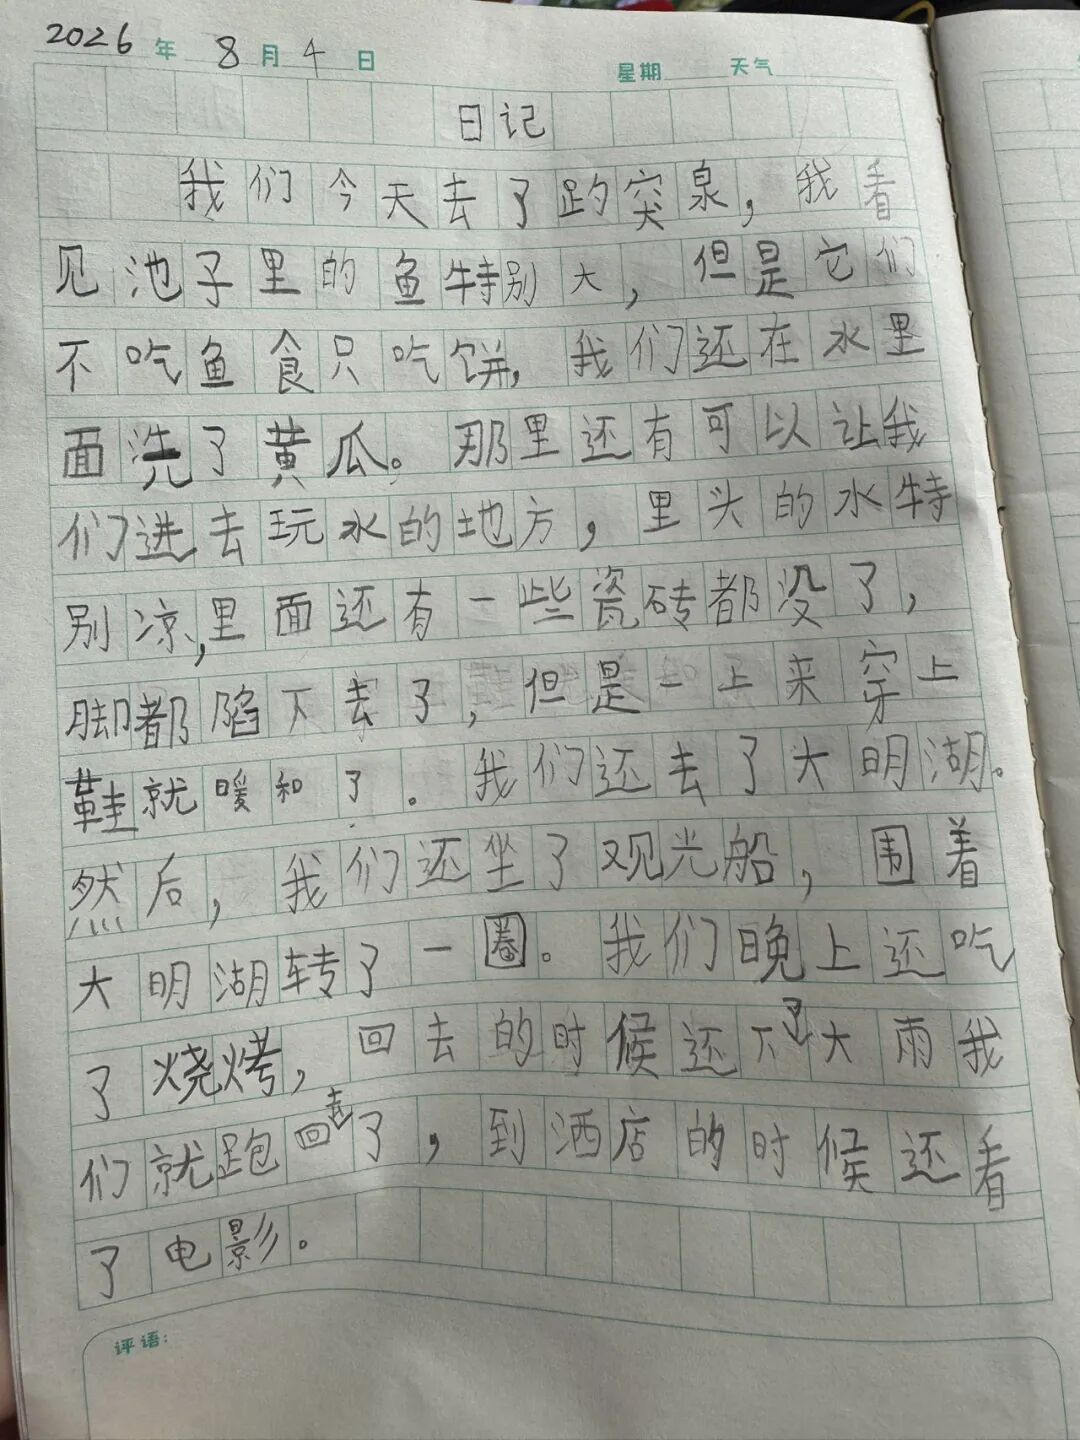 2026年8月4日 星期 天气
日记
我们今天去了趵突泉，我看
见池子里的鱼特别大，但是它们
不吃鱼食只吃饼，我们还在水里
面洗了黄瓜。那里还有可以让我
们进去玩水的地方，里头的水特
别凉，里面还有一些瓷砖都没了，
脚都陷下去了，但是一上来穿上
鞋就暖和了。我们还去了大明湖。
然后，我们还坐了观光船，围着
大明湖转了一圈。我们晚上还吃
了烧烤，回去的时候还下了大雨我
们就跑回去了，到酒店的时候还看
了电影。
评语：